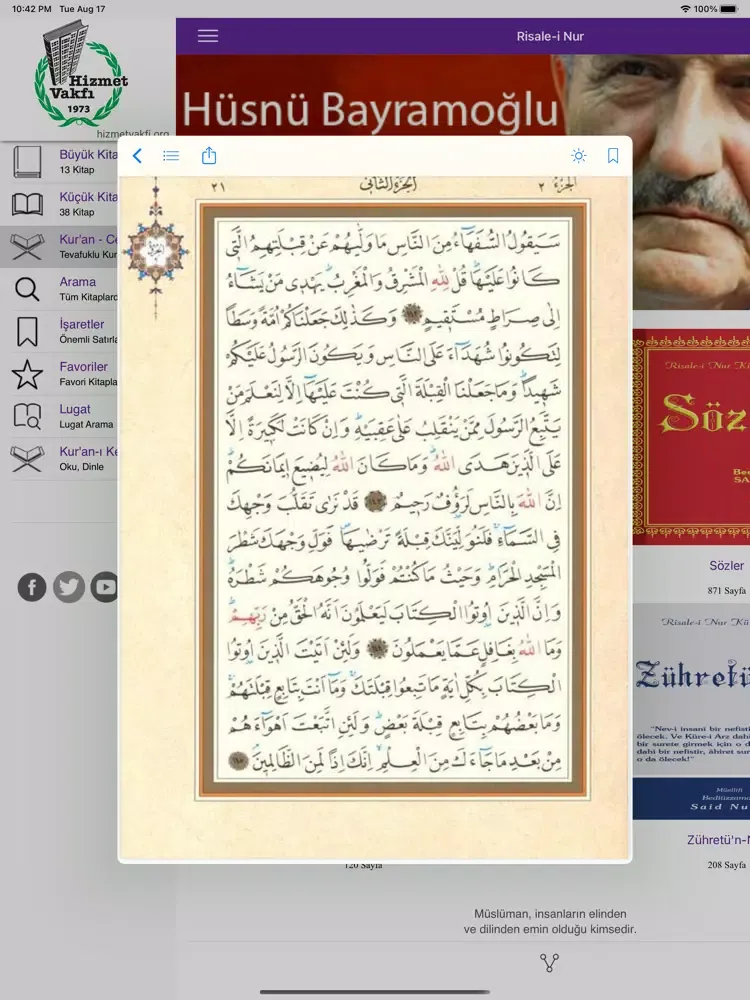 10:42 PM Tue Aug 17
100%
Hizmet
Vakfı
1973
hizmetvakfi.org
Büyük Kita
13 Kitap
Küçük Kita
38 Kitap
Kur'an - Ce
Tevafuklu Kur
Arama
Tüm Kitaplard
İşaretler
Önemli Satırla
Favoriler
Favori Kitapla
Lugat
Lugat Arama
Kur'an-ı Ke
Oku, Dinle
Risale-i Nur
Hüsnü Bayramoğlu
٢١ الجزء الثاني الجزء ٢
سَيَقُولُ السُّفَهَاءُ مِنَ النَّاسِ مَا وَلّٰيهُمْ عَنْ قِبْلَتِهِمُ الَّتِى
كَانُوا عَلَيْهَا قُلْ لِلّٰهِ الْمَشْرِقُ وَالْمَغْرِبُ يَهْدِى مَنْ يَشَاءُ
اِلٰى صِرَاطٍ مُسْتَقِيمٍ ١٤٢ وَكَذٰلِكَ جَعَلْنَاكُمْ اُمَّةً وَسَطًا
لِتَكُونُوا شُهَدَاءَ عَلَى النَّاسِ وَيَكُونَ الرَّسُولُ عَلَيْكُمْ
شَهِيدًا وَمَا جَعَلْنَا الْقِبْلَةَ الَّتِى كُنْتَ عَلَيْهَا اِلَّا لِنَعْلَمَ مَنْ
يَتَّبِعُ الرَّسُولَ مِمَّنْ يَنْقَلِبُ عَلٰى عَقِبَيْهِ وَاِنْ كَانَتْ لَكَبِيرَةً اِلَّا
عَلَى الَّذِينَ هَدَى اللّٰهُ وَمَا كَانَ اللّٰهُ لِيُضِيعَ اِيمَانَكُمْ
اِنَّ اللّٰهَ بِالنَّاسِ لَرَؤُفٌ رَحِيمٌ ١٤٣ قَدْ نَرٰى تَقَلُّبَ وَجْهِكَ
فِى السَّمَاءِ فَلَنُوَلِّيَنَّكَ قِبْلَةً تَرْضٰيهَا فَوَلِّ وَجْهَكَ شَطْرَ
الْمَسْجِدِ الْحَرَامِ وَحَيْثُ مَا كُنْتُمْ فَوَلُّوا وُجُوهَكُمْ شَطْرَهُ
وَاِنَّ الَّذِينَ اُوتُوا الْكِتَابَ لَيَعْلَمُونَ اَنَّهُ الْحَقُّ مِنْ رَبِّهِمْ
وَمَا اللّٰهُ بِغَافِلٍ عَمَّا يَعْمَلُونَ ١٤٤ وَلَئِنْ اَتَيْتَ الَّذِينَ اُوتُوا
الْكِتَابَ بِكُلِّ اٰيَةٍ مَا تَبِعُوا قِبْلَتَكَ وَمَا اَنْتَ بِتَابِعٍ قِبْلَتَهُمْ
وَمَا بَعْضُهُمْ بِتَابِعٍ قِبْلَةَ بَعْضٍ وَلَئِنِ اتَّبَعْتَ اَهْوَاءَهُمْ
مِنْ بَعْدِ مَا جَاءَكَ مِنَ الْعِلْمِ اِنَّكَ اِذًا لَمِنَ الظَّالِمِينَ ١٤٥
Risale-i Nur Kü
Söz
Be
SA
Sözler
871 Sayfa
Risale-i Nur Kü
Zühretü
"Nev-i insanî bir nefisti
ölecek. Ve Küre-i Arz dahi
bir surete girmek için o d
dahi bir nefistir, âhiret sur
o da ölecek!"
Müellifi
Bediüzzama
Said Nu
Zühretü'n-N
208 Sayfa
120 Sayfa
Müslüman, insanların elinden
ve dilinden emin olduğu kimsedir.